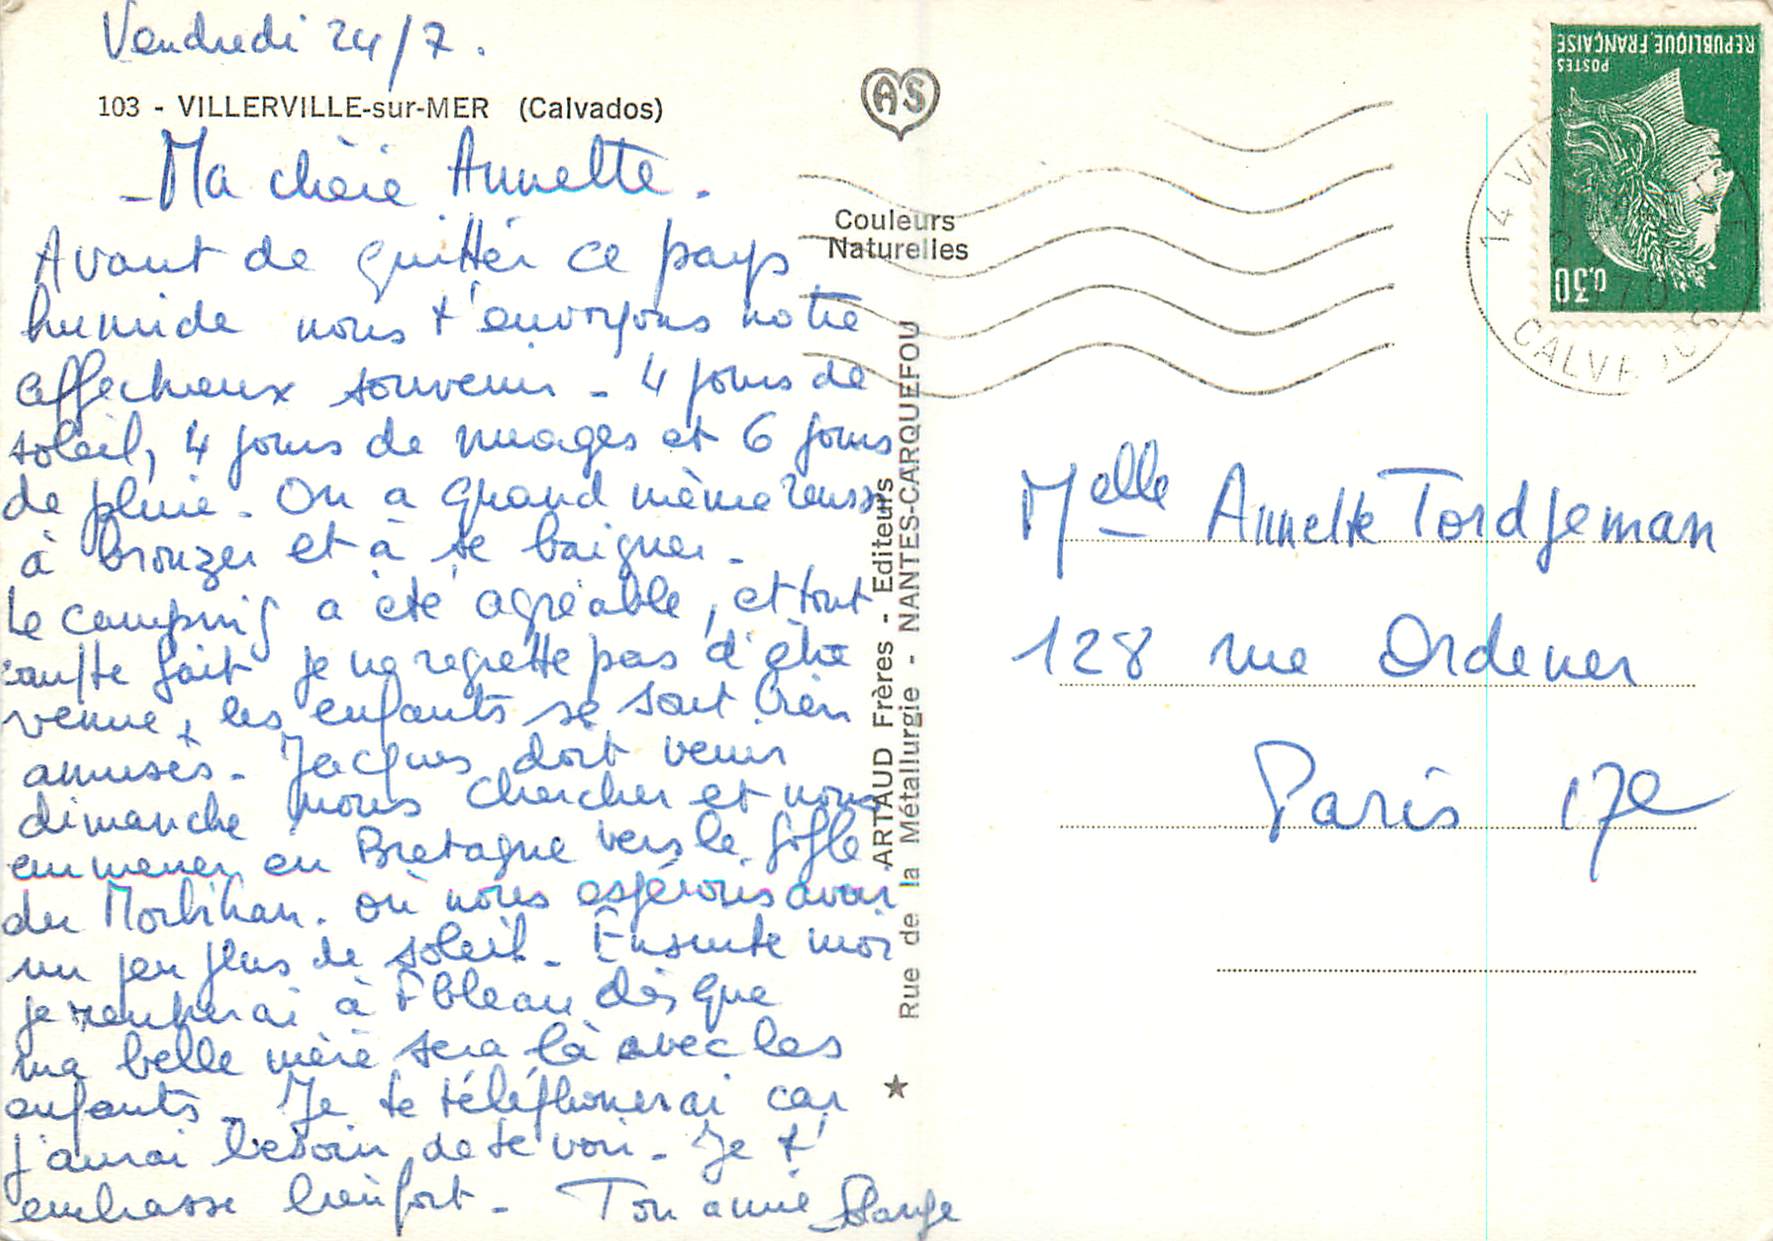 Vendredi 24/7.
103 - VILLERVILLE-sur-MER (Calvados)
- Ma chère Annette.
Avant de quitter ce pays
humide nous t'envoyons notre
affectueux souvenir - 4 jours de
soleil, 4 jours de nuages et 6 jours
de pluie. On a quand même réussi
à bronzer et à se baigner -
Le camping a été agréable, et tout
compte fait je ne regrette pas d'être
venue, les enfants se sont bien
amusés - Jacques doit venir
dimanche nous chercher et nous
emmener en Bretagne vers le golfe
du Morbihan. où nous espérons avoir
un peu plus de soleil - Ensuite moi
je rentrerai à Fbleau dès que
ma belle mère sera là avec les
enfants - Je te téléphonerai car
j'aurai besoin de te voir - Je t'
embrasse bien fort - Ton amie Solange
AS
Couleurs
Naturelles
ARTAUD Frères - Editeurs
Rue de la Métallurgie - NANTES-CARQUEFOU
REPUBLIQUE FRANÇAISE
POSTES
0,30
14 VI
CALVADOS
Melle Annette Tordjeman
128 rue Ordener
Paris 17e